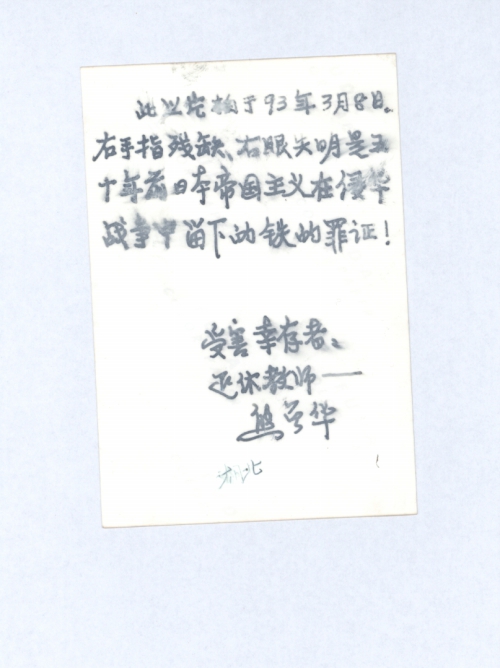 此照片拍于93年3月8日。
右手指残缺、右眼失明是五
十年前日本帝国主义在侵华
战争中留下的铁的罪证！
受害幸存者、
退休教师——
熊华
湖北